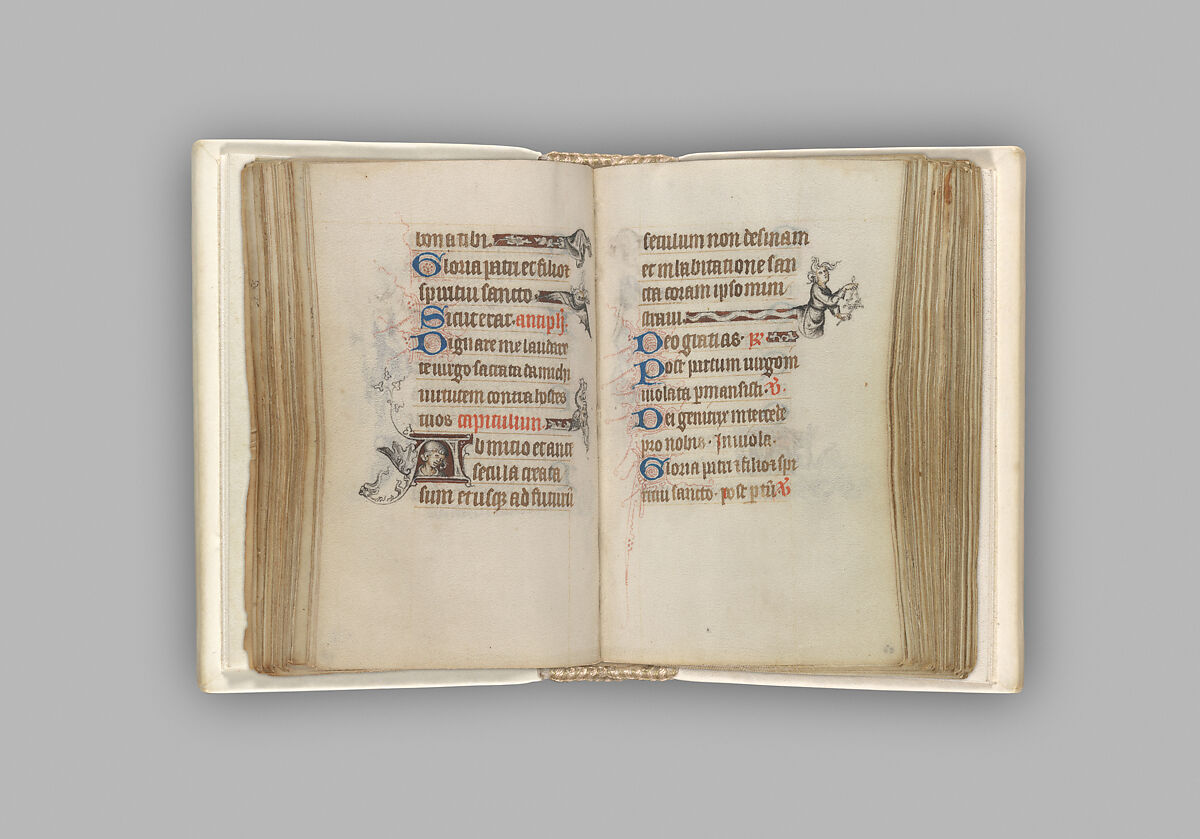 bona tibi.
Gloria patri et filio &
spiritui sancto
Sicut erat. antiph.
Dignare me laudare
te uirgo sacrata da michi
uirtutem contra hostes
tuos capitulum.
Ab initio et ante
secula creata
sum et usq3 ad futurū
seculum non desinam
et in habitatione san
cta coram ipso mini
straui.
Deo gratias. R
Post partum uirgo in
uiolata pmansisti. V
Dei genitrix intercede
pro nobis. Inuiola.
Gloria patri & filio & spi
ritui sancto. post ptū. V